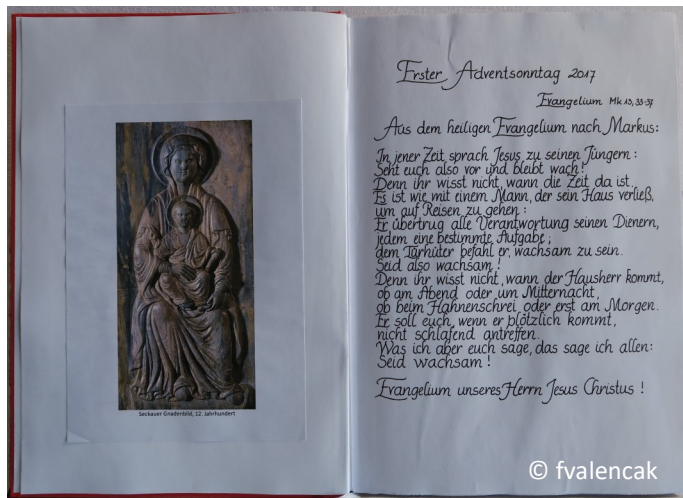 Seckauer Gnadenbild, 12. Jahrhundert
Erster Adventsonntag 2017
Evangelium Mk 13, 33-37
Aus dem heiligen Evangelium nach Markus:
In jener Zeit sprach Jesus zu seinen Jüngern:
Seht euch also vor und bleibt wach!
Denn ihr wisst nicht, wann die Zeit da ist.
Es ist wie mit einem Mann, der sein Haus verließ,
um auf Reisen zu gehen:
Er übertrug alle Verantwortung seinen Dienern,
jedem eine bestimmte Aufgabe;
dem Türhüter befahl er, wachsam zu sein.
Seid also wachsam!
Denn ihr wisst nicht, wann der Hausherr kommt,
ob am Abend oder um Mitternacht,
ob beim Hahnenschrei oder erst am Morgen.
Er soll euch, wenn er plötzlich kommt,
nicht schlafend antreffen.
Was ich aber euch sage, das sage ich allen:
Seid wachsam!
Evangelium unseres Herrn Jesus Christus!
© fvalencak